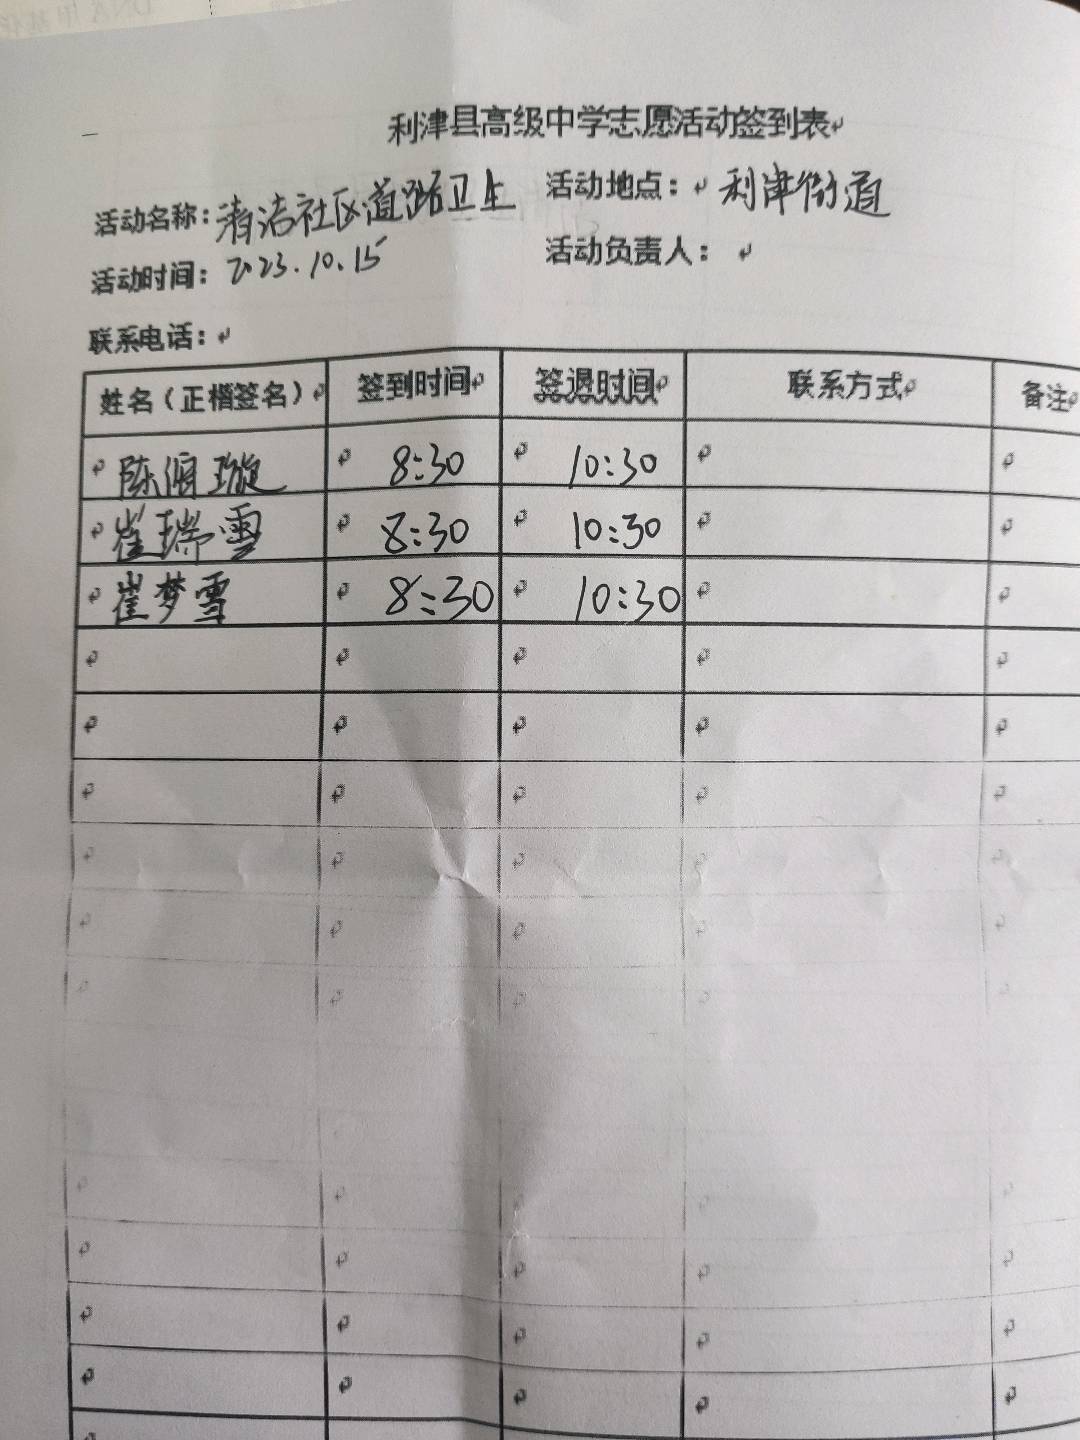 利津县高级中学志愿活动签到表
活动名称：清洁社区道路卫生 活动地点：利津街道
活动时间：2023.10.15 活动负责人：
联系电话：
姓名（正楷签名） 签到时间 签退时间 联系方式 备注
陈俪璇 8:30 10:30
崔瑞雪 8:30 10:30
崔梦雪 8:30 10:30